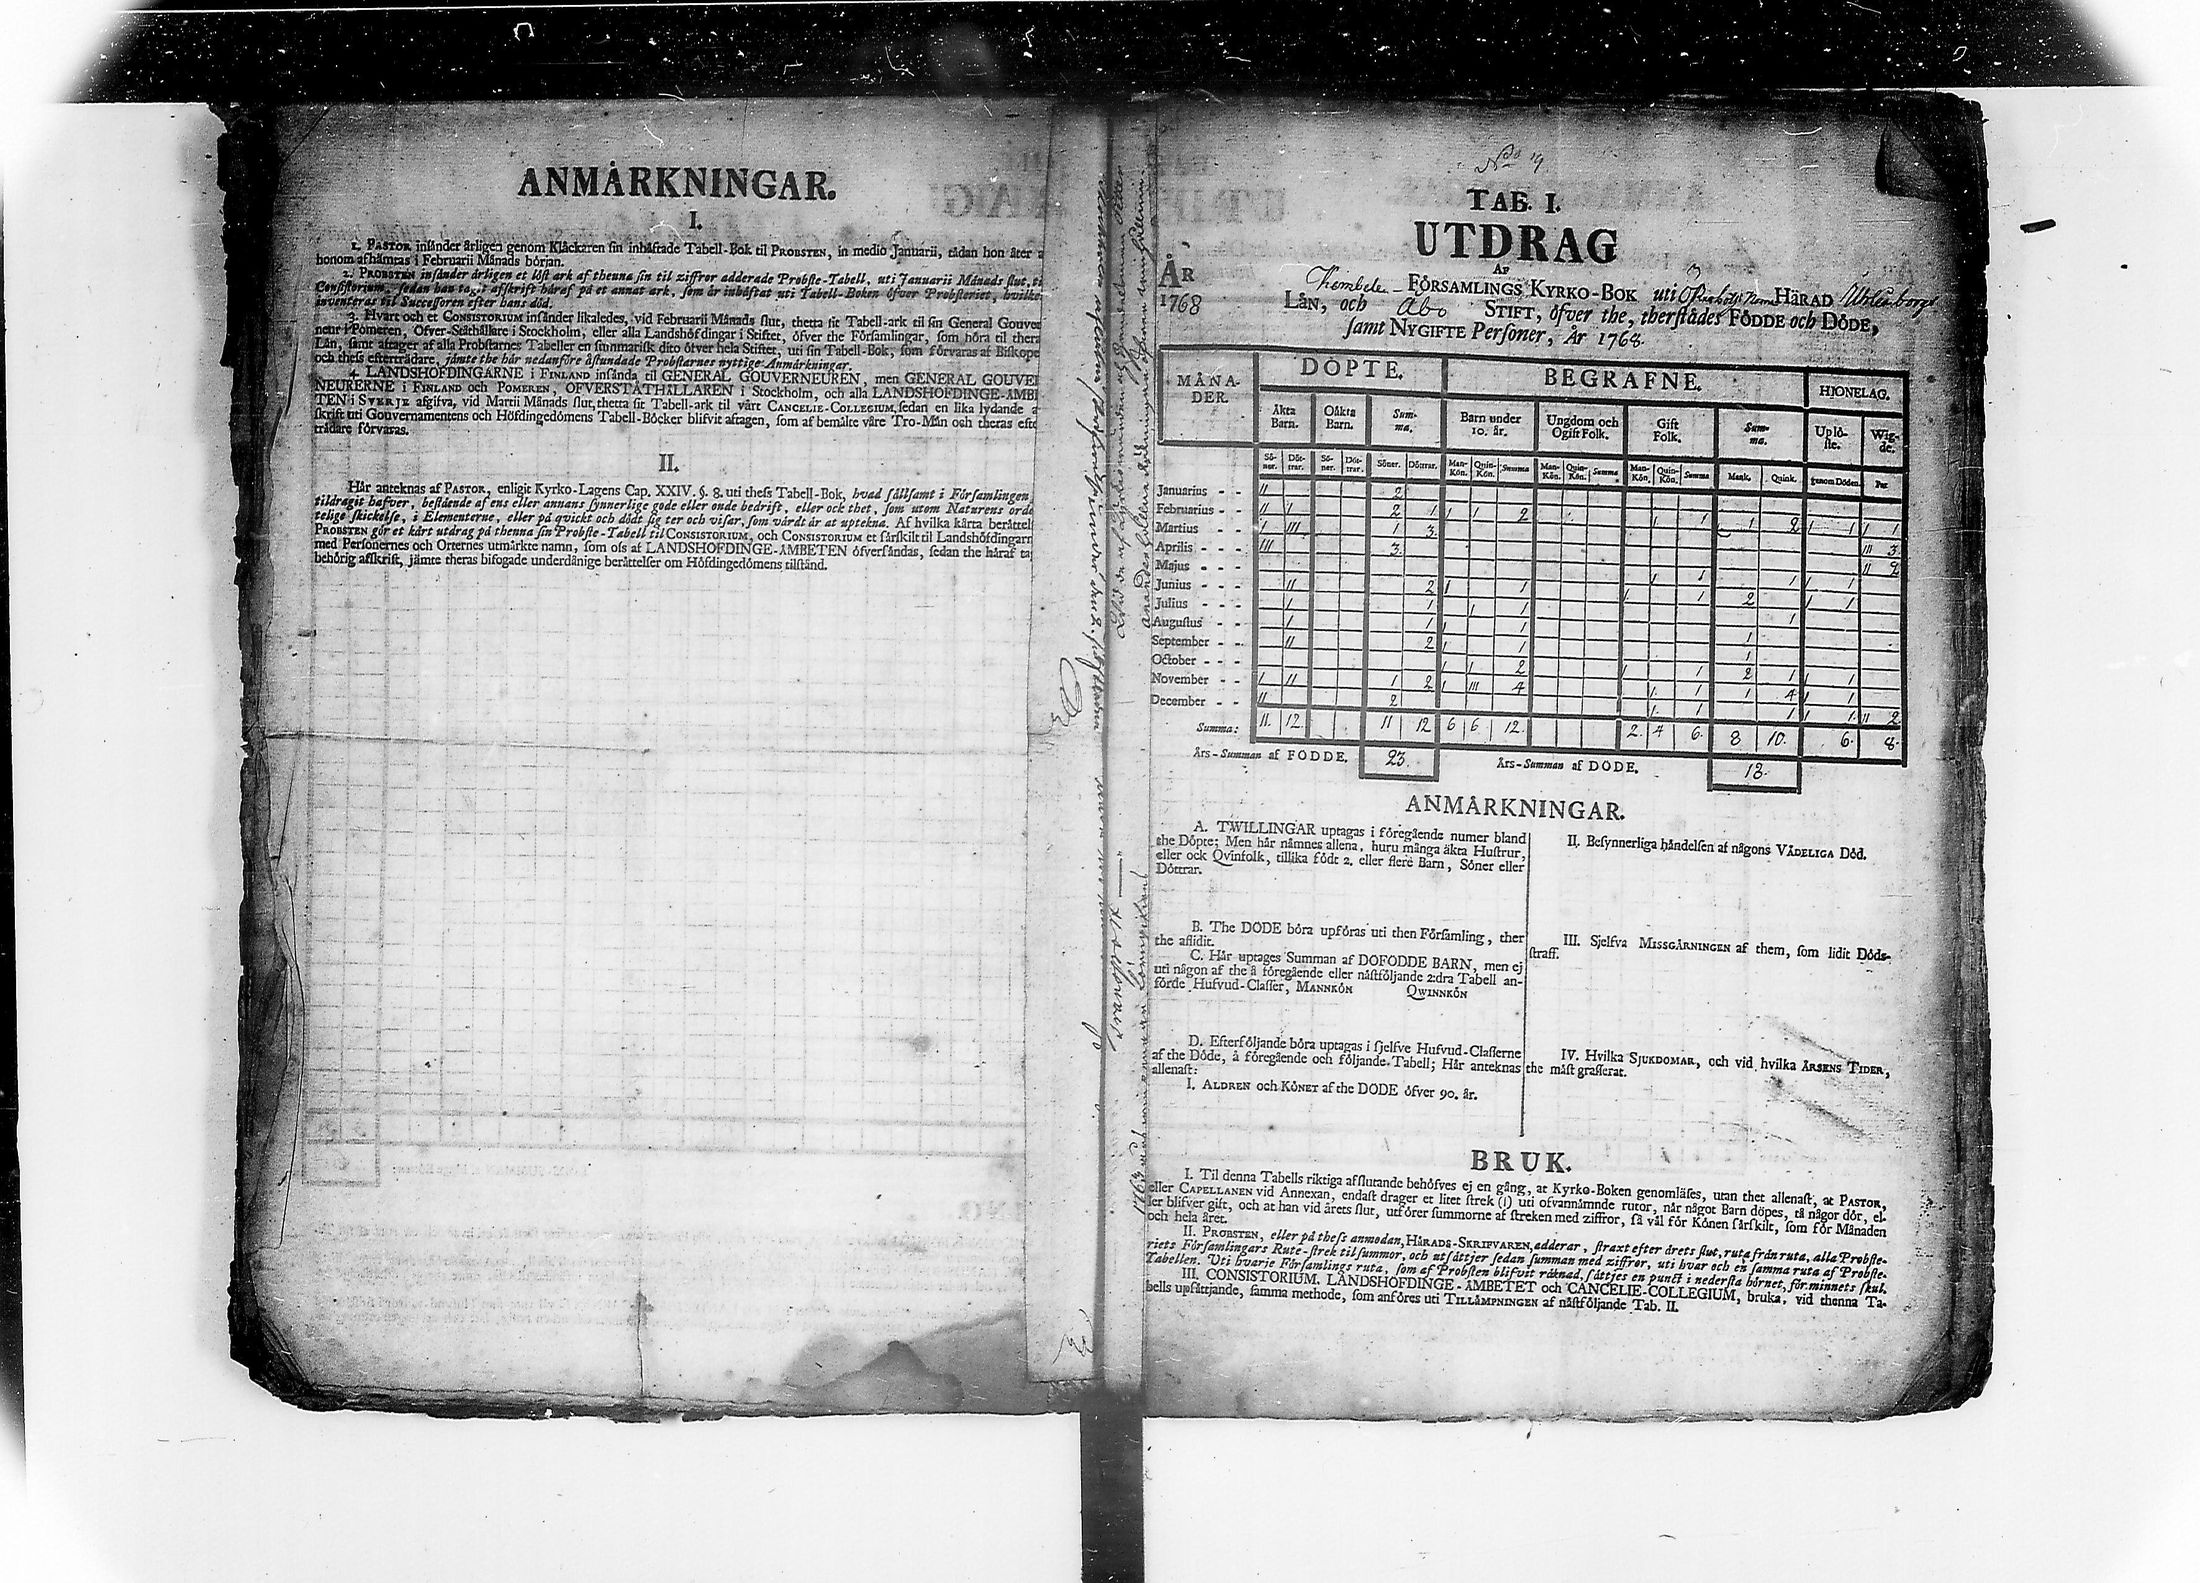 ANMÅRKNINGAR.
I.
1. PASTOR insånder årligen genom Klåckaren sin inbåftade Tabell-Bok til PROBSTEN, in medio Januarii, tådan hon åter
honom afhåmtas i Februarii Månads början.
2. PROBSTEN insånder årligen et löst ark af thenna sin til ziffror adderade Probste-Tabell, uti Januarii Månads slut, ti
Consistorium, sedan han tagit afskrift håraf på et annat ark, som år inbåftat uti Tabell-Boken öfver Probsteriet, hvilke
inventeras til Successoren efter hans död.
3. Hvart och et CONSISTORIUM insånder likaledes, vid Februarii Månads slut, thetta sit Tabell-ark til sin General Gouver
neur i Pomeren, Öfver-Ståthållare i Stockholm, eller alla Landshöfdingar i Stiftet, öfver the Församlingar, som höra til thera
Lån, samt aftager af alla Probstarnes Tabeller en summarisk dito öfver hela Stiftet, uti sin Tabell-Bok, som förvaras af Biskope
och thess eftertrådare, jåmte the hår nedanföre åstundade Probstarnes nyttige Anmårkningar.
4. LANDSHÖFDINGARNE i FINLAND insånda til GENERAL GOUVERNEUREN, men GENERAL GOUVER
NEURERNE i FINLAND och POMEREN, ÖFVERSTÅTHÅLLAREN i Stockholm, och alla LANDSHÖFDINGE-ÅMBE
TEN i SVERJE afgifva, vid Martii Månads slut, thetta sit Tabell-ark til vårt CANCELIE-COLLEGIUM, sedan en lika lydande a
skrift uti Gouvernamentens och Höfdingedömens Tabell-Böcker blifvit aftagen, som af bemålte våre Tro-Mån och theras efte
trådare förvaras.
II.
Hår anteknas af PASTOR, enligit Kyrko-Lagens Cap. XXIV. §. 8. uti thess Tabell-Bok, hvad sållsamt i Församlingen
tildragit hafver, beståande af ens eller annans synnerlige gode eller onde bedrift, eller ock thet, som utom Naturens orde
telige skickelse, i Elementerne, eller på qvickt och dödt sig ter och visar, som vårdt år at uptekna. Af hvilka kårta beråttels
PROBSTEN gör et kårt utdrag på thenna sin Probste-Tabell til CONSISTORIUM, och CONSISTORIUM et sårskilt til Landshöfdingarn
med Personernes och Orternes utmårkte namn, som oss af LANDSHÖFDINGE-ÅMBETEN öfversåndas, sedan the håraf ta
behörig afskrift, jåmte theras bifogade underdånige beråttelser om Höfdingedömens tilstånd.
No 19
TAB. I.
UTDRAG
AF
ÅR
1768
Kembele FÖRSAMLINGS KYRKO-BOK uti HÄRAD Uhleåborgs
LÅN, och Åbo STIFT, öfver the, therstådes FÖDDE och DÖDE,
samt NYGIFTE Personer, År 1768.
MÅNA-DER. DÖPTE. BEGRAFNE. HJONELAG.
Åkta Barn. Oåkta Barn. Sum-ma. Barn under 10. år. Ungdom och Ogift Folk. Gift Folk. Sum-ma. Uplö-ste. Wig-de.
Sö-ner. Döt-trar. Sö-ner. Döt-trar. Söner. Döttrar. Man-Kön. Quin-Kön. Summa Man-Kön. Quin-Kön. Summa Man-Kön. Quin-Kön. Summa Mank. Quink. genom Döden. Par
Januarius - - II 2
Februarius - - II I 2 1 I I 2 1 1 1 2 1 1
Martius - - I III 1 3 1
Aprilis - - - III 3 III 3
Majus - - - II 2
Junius - - - II 2 I 1 1 1 1 1
Julius - - - I 1 I 1 1 1 2 1 1
Augustus - - I 1 1 1
September - - II 2 I 1 1
October - - - I I 2 1
November - - I II 1 2 I III 4 1 1 2 1 1 1
December - - II 2 1 1 1 4 1 1
Summa: 11. 12 11 12 6 6 12. 2. 4 6. 8 10. 6. 8.
Års-Summan af FÖDDE. 23. Års-Summan af DÖDE. 18.
ANMÅRKNINGAR.
A. TWILLINGAR uptagas i föregående numer bland
the Döpte: Men hår nåmnes allena, huru många åkta Hustrur,
eller ock Qvinfolk, tillika födt 2. eller flere Barn, Söner eller
Döttrar.
B. The DÖDE böra upföras uti then Församling, ther
the aflidit.
C. Hår uptages Summan af DÖFÖDDE BARN, men ej
uti någon af the å föregående eller nåstföljande 2:dra Tabell an-
förde Hufvud-Classer, MANNKÖN QWINNKÖN
D. Efterföljande böra uptagas i sjelfve Hufvud-Classerne
af the Döde, å föregående och följande Tabell; Hår anteknas
allenast:
I. ÅLDREN och KÖNET af the DÖDE öfver 90. år.
II. Besynnerliga håndelsen af någons VÅDELIGA Död.
III. Sjelfva MISSGÅRNINGEN af them, som lidit Döds-
straff.
IV. Hvilka SJUKDOMAR, och vid hvilka ÅRSENS TIDER,
the måst grasserat.
BRUK.
I. Til denna Tabells riktiga afslutande behöfves ej en gång, at Kyrko-Boken genomlåses, utan thet allenast, at PASTOR,
eller CAPELLANEN vid Annexan, endast drager et litet strek (I) uti ofvannåmnde rutor, når något Barn döpes, tå någor dör, el-
ler blifver gift, och at han vid årets slut, utförer summorne af streken med ziffror, så vål för Könen sårskilt, som för Månaden
och hela året.
II. PROBSTEN, eller på thess anmodan, HÅRADS-SKRIFVAREN, adderar, straxt efter årets slut, ruta från ruta, alla Probste-
riets Församlingars Rute-strek til summor, och utsåttjer sedan summan med ziffror, uti hvar och en samma ruta af Probste-
Tabellen. Uti hvarje Församlings ruta, som af Probsten blifvit råknad, såttjes en punct i nedersta hörnet, för minnets skul.
III. CONSISTORIUM. LANDSHÖFDINGE-ÅMBETET och CANCELIE-COLLEGIUM, bruka, vid thenna Ta-
bells upsåttjande, samma methode, som anföres uti TILLÅMPNINGEN af nåstföljande Tab. II.